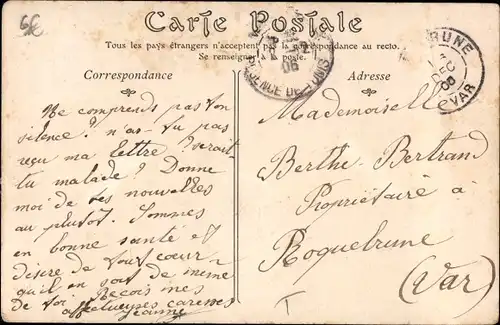 6€
Carte Postale
Tous les pays étrangers n'acceptent pas la correspondance au recto.
Se renseigner à la poste.
Correspondance
Adresse
RÉGENCE DE TUNIS
06
BRUNE
DEC
06
VAR
Ne comprends pas ton
silence? n'as-tu pas
reçu ma lettre? serait-
tu malade? Donne
moi de tes nouvelles
au plutot. Sommes
en bonne santé et
désire de tout coeur
qu'il en soit de même
de toi. Reçois mes
affectueuses caresses
Jeanne
Mademoiselle
Berthe Bertrand
Propriétaire à
Roquebrune
(Var)
T